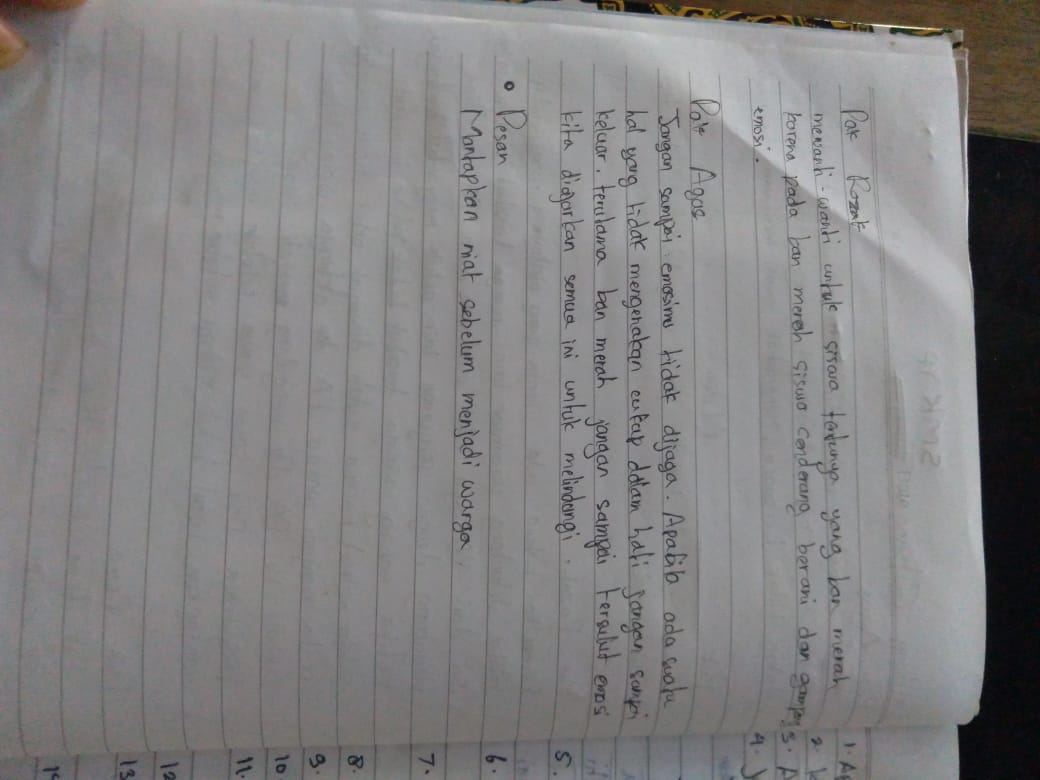 Pak Rozak
menwanti-wanti untuk siswa tentunya yang ban merah
karena pada ban merah siswa cenderang berani dan gampang
emosi.
Pak Agas
Jangan sampai emosimu tidak dijaga. Apabila ada suatu
hal yang tidak mengenakan cukup dalam hati jangan sampai
keluar. terutama ban merah jangan sampai tersulut emosi
kita diajarkan semua ini untuk melindungi.
• Pesan
Mantapkan niat sebelum menjadi warga.
1. A
2. k
3. A
4. J
5.
6.
7.
8.
9.
10
11.
12
13